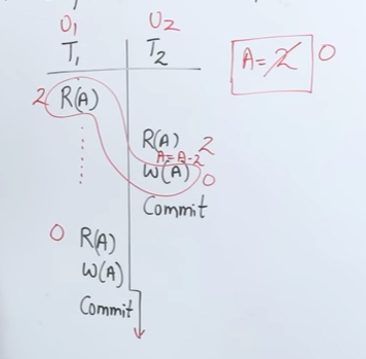 U1 U2
T1 T2
A=2 0
2 R(A)
R(A) 2
A=A-2
W(A) 0
Commit
0 R(A)
W(A)
Commit